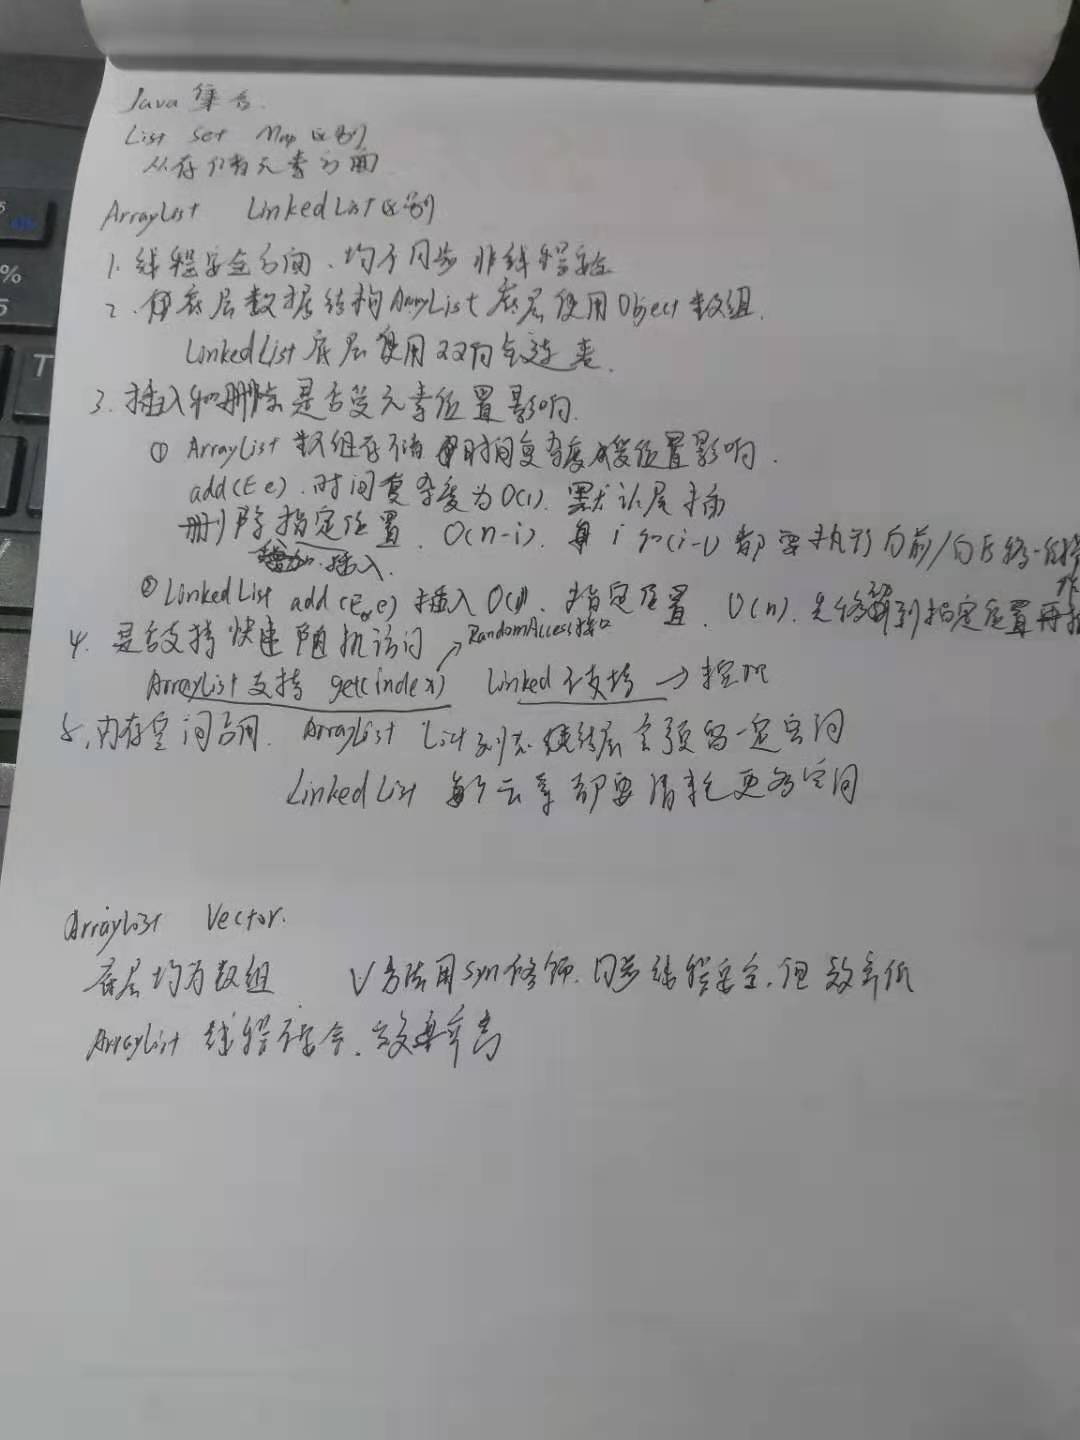 Java 集合.
List Set Map 区别
从存储元素方面
ArrayList LinkedList 区别
1. 线程安全方面、均不同步 非线程安全
2、底层数据结构 ArrayList 底层使用 Object 数组.
LinkedList 底层使用双向链表.
3. 插入和删除是否受元素位置影响.
① ArrayList 数组存储 时间复杂度受位置影响.
add(E e). 时间复杂度为 O(1). 默认尾插
删除指定位置. O(n-i). 都要执行向前/向后移一位操作
插入.
② LinkedList add(E e) 插入 O(1). 指定位置. O(n). 先移到指定位置再插
4. 是否支持快速随机访问 RandomAccess接口
ArrayList 支持 get(index) Linked 不支持 →
5. 内存空间占用. ArrayList List列表结尾会预留一定空间
LinkedList 每个元素都要消耗更多空间
ArrayList Vector.
底层均为数组 V方法用 syn 修饰. 同步线程安全. 但效率低
ArrayList 线程不安全. 效率高